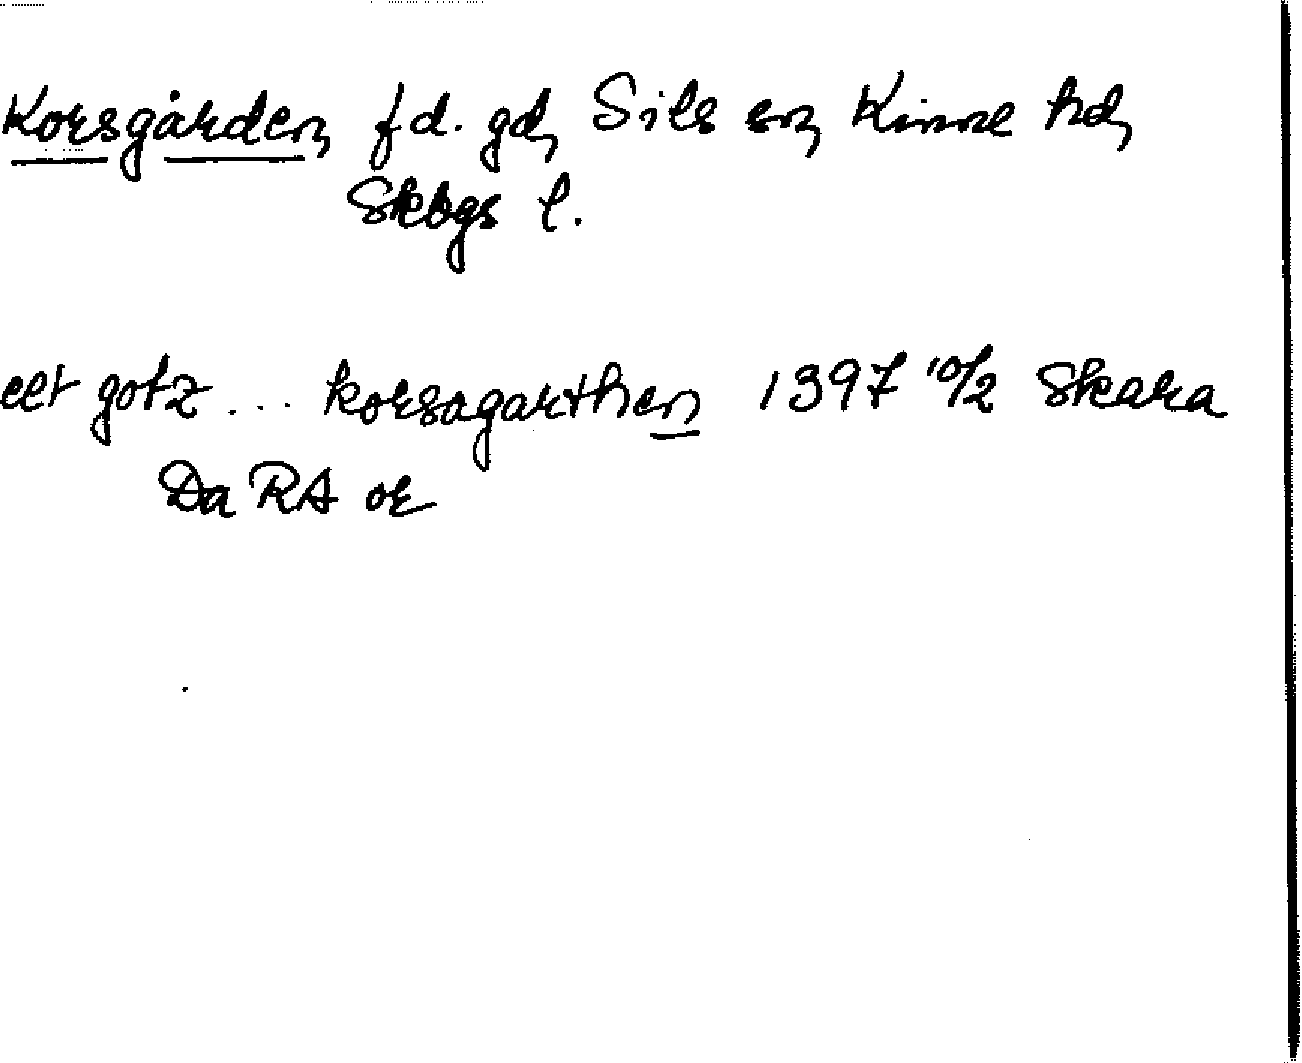 Korsgården, fd. gd, Sils sn, Kinne hd,
Skbgs l.
eet gotz ... korsagarthen 1397 10/2 Skara
Da RA or